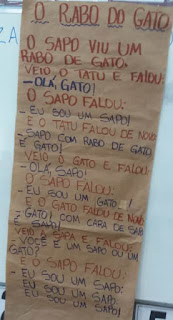 O RABO DO GATO
ZA
O SAPO VIU UM
RABO DE GATO.
VEIO O TATU E FALOU:
- OLÁ, GATO!
O SAPO FALOU:
- EU SOU UM SAPO!
E O TATU FALOU DE NOVO
- SAPO COM RABO DE GATO
É GATO!
VEIO O GATO E FALOU:
- OLÁ, SAPO!
O SAPO FALOU:
- EU SOU UM GATO!
E O GATO FALOU DE NOVO
- GATO! COM CARA DE SAPO
SAPO!
VEIO A SAPA E FALOU:
- VOCÊ É UM SAPO OU UM
GATO!
E O SAPO FALOU:
- EU SOU UM SAPO.
EU SOU UM SAPO.
EU SOU UM SAPO!